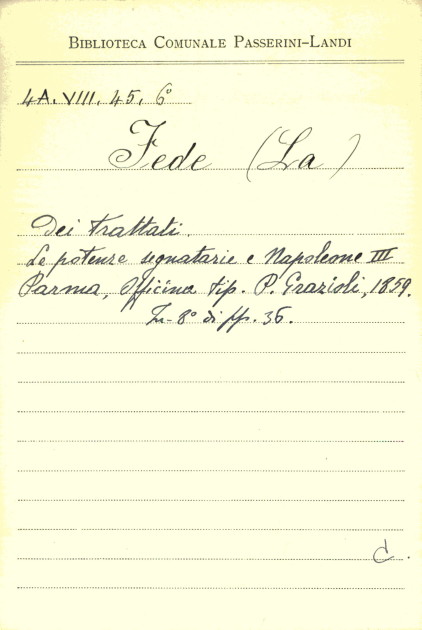 BIBLIOTECA COMUNALE PASSERINI-LANDI
4A. VIII. 45. 6°
Fede (La)
Dei trattati.
Le potenze segnatarie e Napoleone III
Parma, Officina tip. P. Grazioli, 1859.
In-8° di pp. 36.
C.